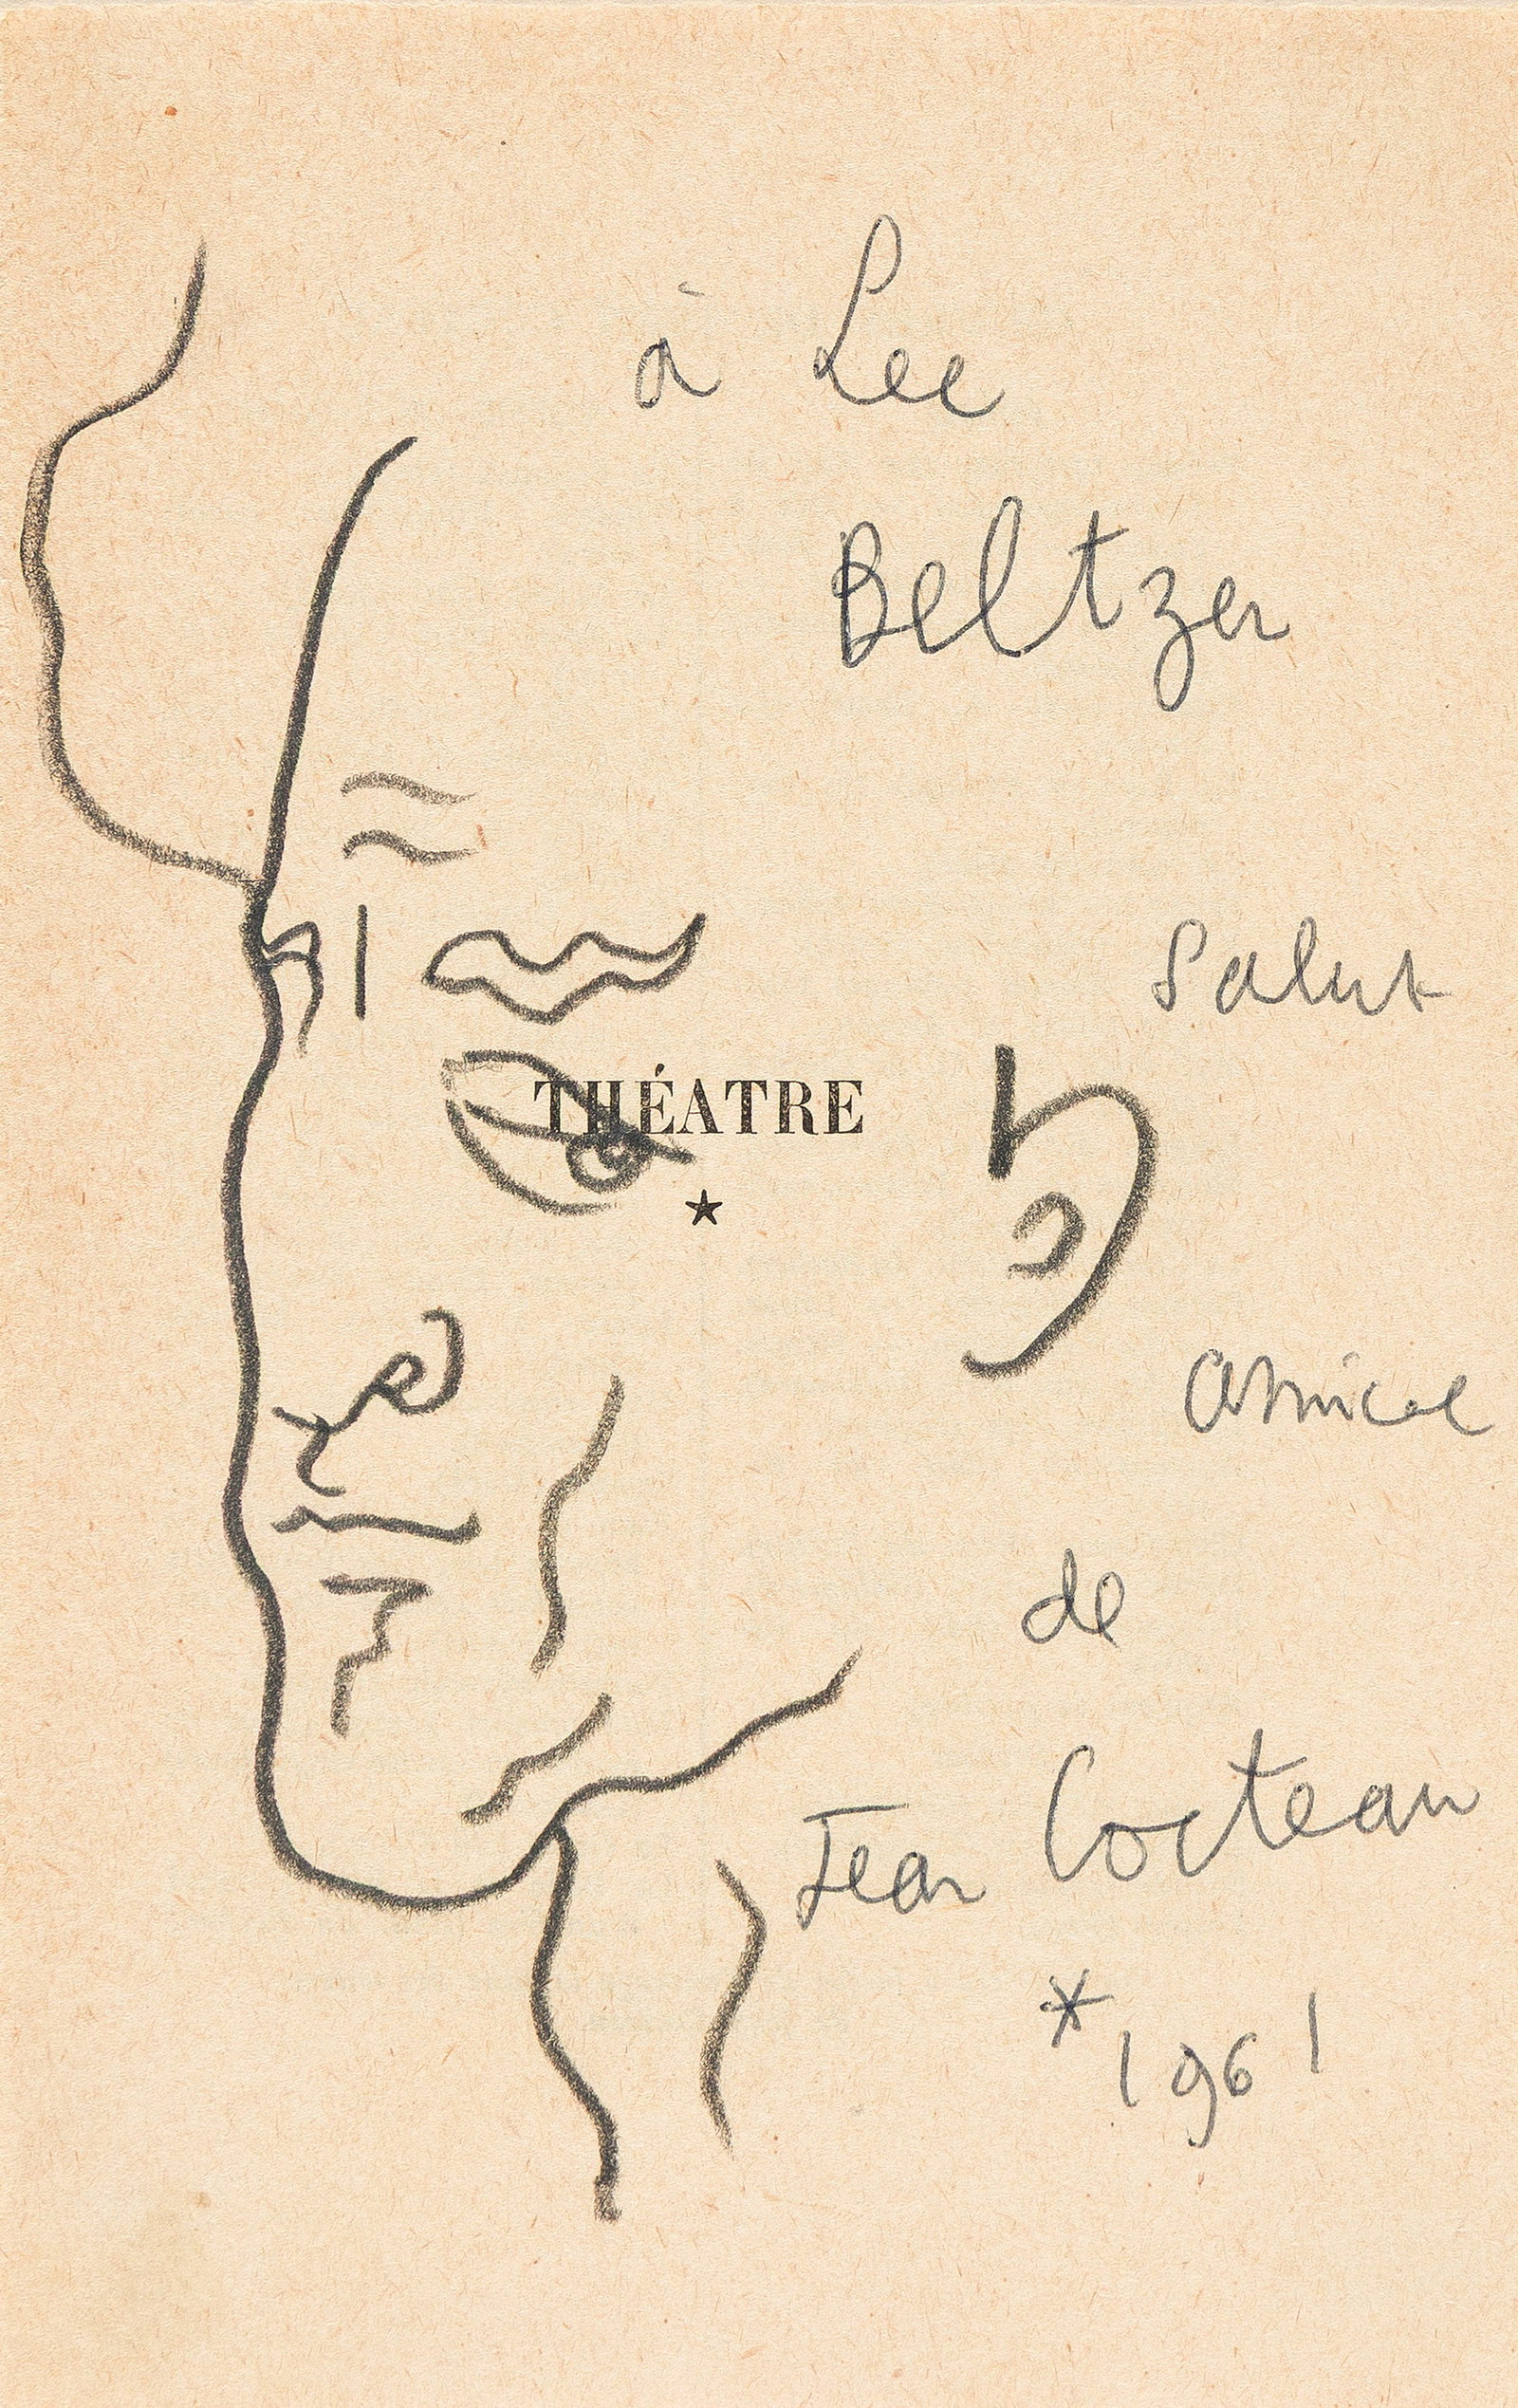 à Lee
Beltzer
Salut
THÉATRE
★
amical
de
Jean Cocteau
* 1961